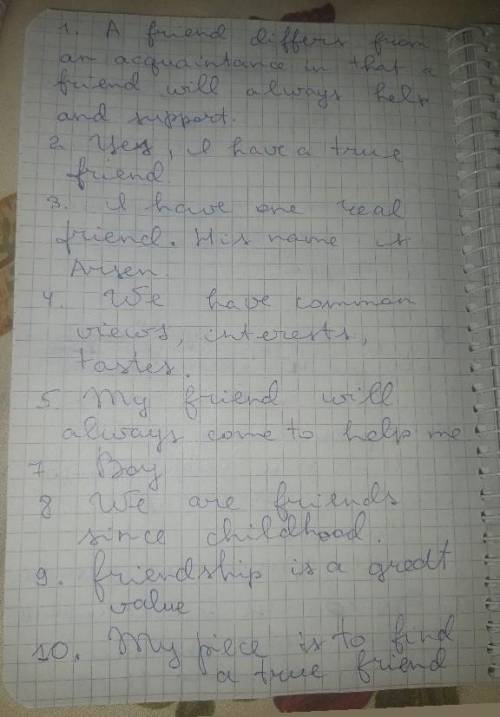 1. A friend differs from
an acquaintance in that a
friend will always help
and support.
2. Yes, I have a true
friend.
3. I have one real
friend. His name is
Arsen.
4. We have common
views, interests,
tastes.
5. My friend will
always come to help me
7. Boy
8 We are friends
since childhood.
9. friendship is a great
value
10. My piece is to find
a true friend